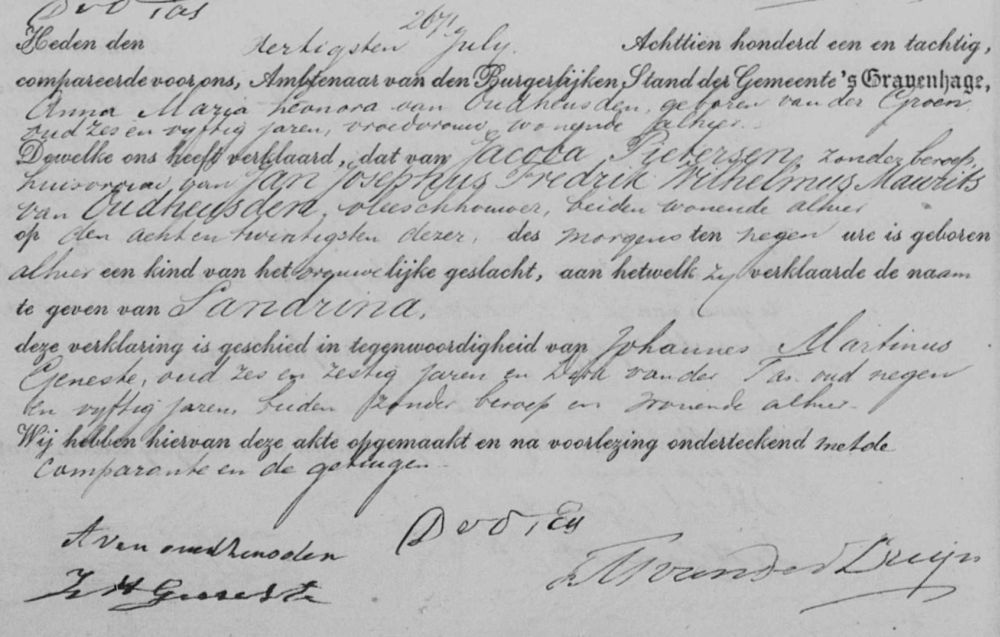 D v d Tas
2671
Heden den dertigsten July. Achttien honderd een en tachtig,
compareerde voor ons, Ambtenaar van den Burgerlijken Stand der Gemeente 's Gravenhage,
Anna Maria Leonora van Oudheusden, geboren van der Groen
oud zes en vyftig jaren, vroedvrouw, wonende alhier.
Dewelke ons heeft verklaard, dat van Jacoba Pietersen, zonder beroep,
huisvrouw van Jan Josephus Fredrik Wilhelmus Maurits
van Oudheusden, vleeschhouwer, beiden wonende alhier
op den acht en twintigsten dezer, des morgens ten negen ure is geboren
alhier een kind van het vrouwelijke geslacht, aan hetwelk zy verklaarde de naam
te geven van Sandrina,
deze verklaring is geschied in tegenwoordigheid van Johannes Martinus
Geneste, oud zes en zestig jaren en Dirk van der Tas oud negen
en vyftig jaren, beiden zonder beroep en wonende alhier.
Wij hebben hiervan deze akte opgemaakt en na voorlezing onderteekend met de
Comparante en de getuigen.
A van oudheusden D v d Tas
J M Geneste van der Kruijn